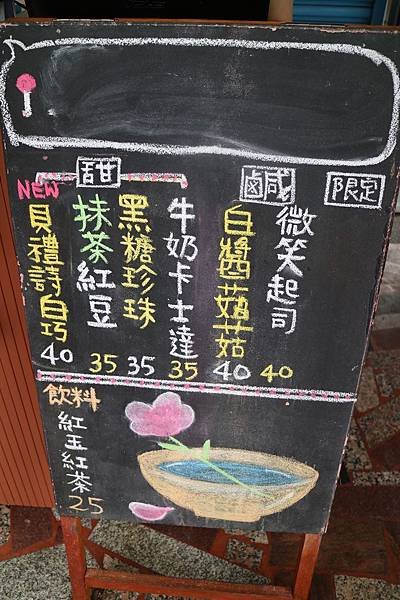 甜
鹹
限定
NEW
貝禮詩白巧
40
抹茶紅豆
35
黑糖珍珠
35
牛奶卡士達
35
白醬菇菇
40
微笑起司
40
飲料
紅玉紅茶
25